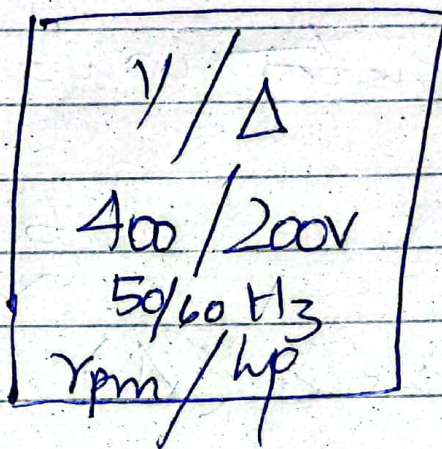 Y/Δ
400/200V
50/60 Hz
rpm/hp